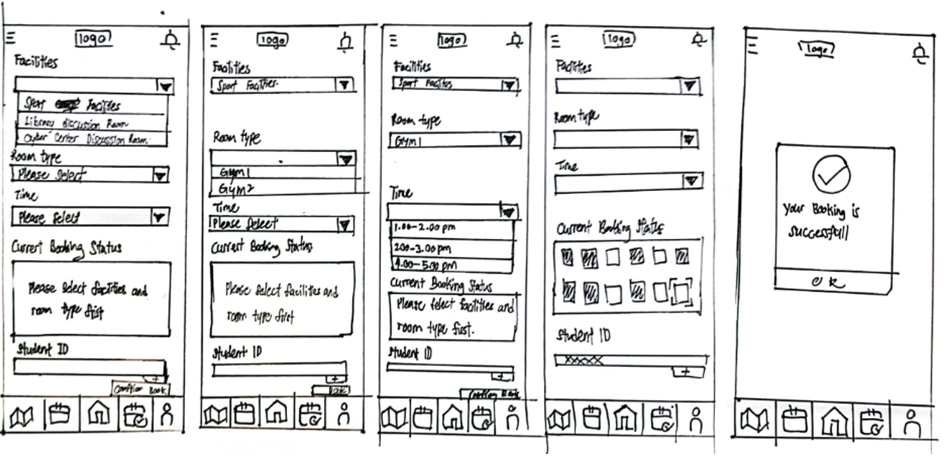 logo
Facilities
Sport Facilities
Library Discussion Room
Cyber Center Discussion Room
Room type
Please Select
Time
Please Select
Current Booking Status
Please select facilities and
room type first
Student ID
+
Confirm Book
logo
Facilities
Sport Facilities
Room type
Gym1
Gym2
Time
Please Select
Current Booking Status
Please select facilities and
room type first
Student ID
+
logo
Facilities
Sport Facilities
Room type
Gym1
Time
1.00-2.00 pm
2.00-3.00 pm
4.00-5.00 pm
Current Booking Status
Please select facilities and
room type first.
Student ID
+
Confirm Book
logo
Facilities
Room type
Time
Current Booking Status
Student ID
xxxxx
+
logo
Your Booking is
successfull
OK